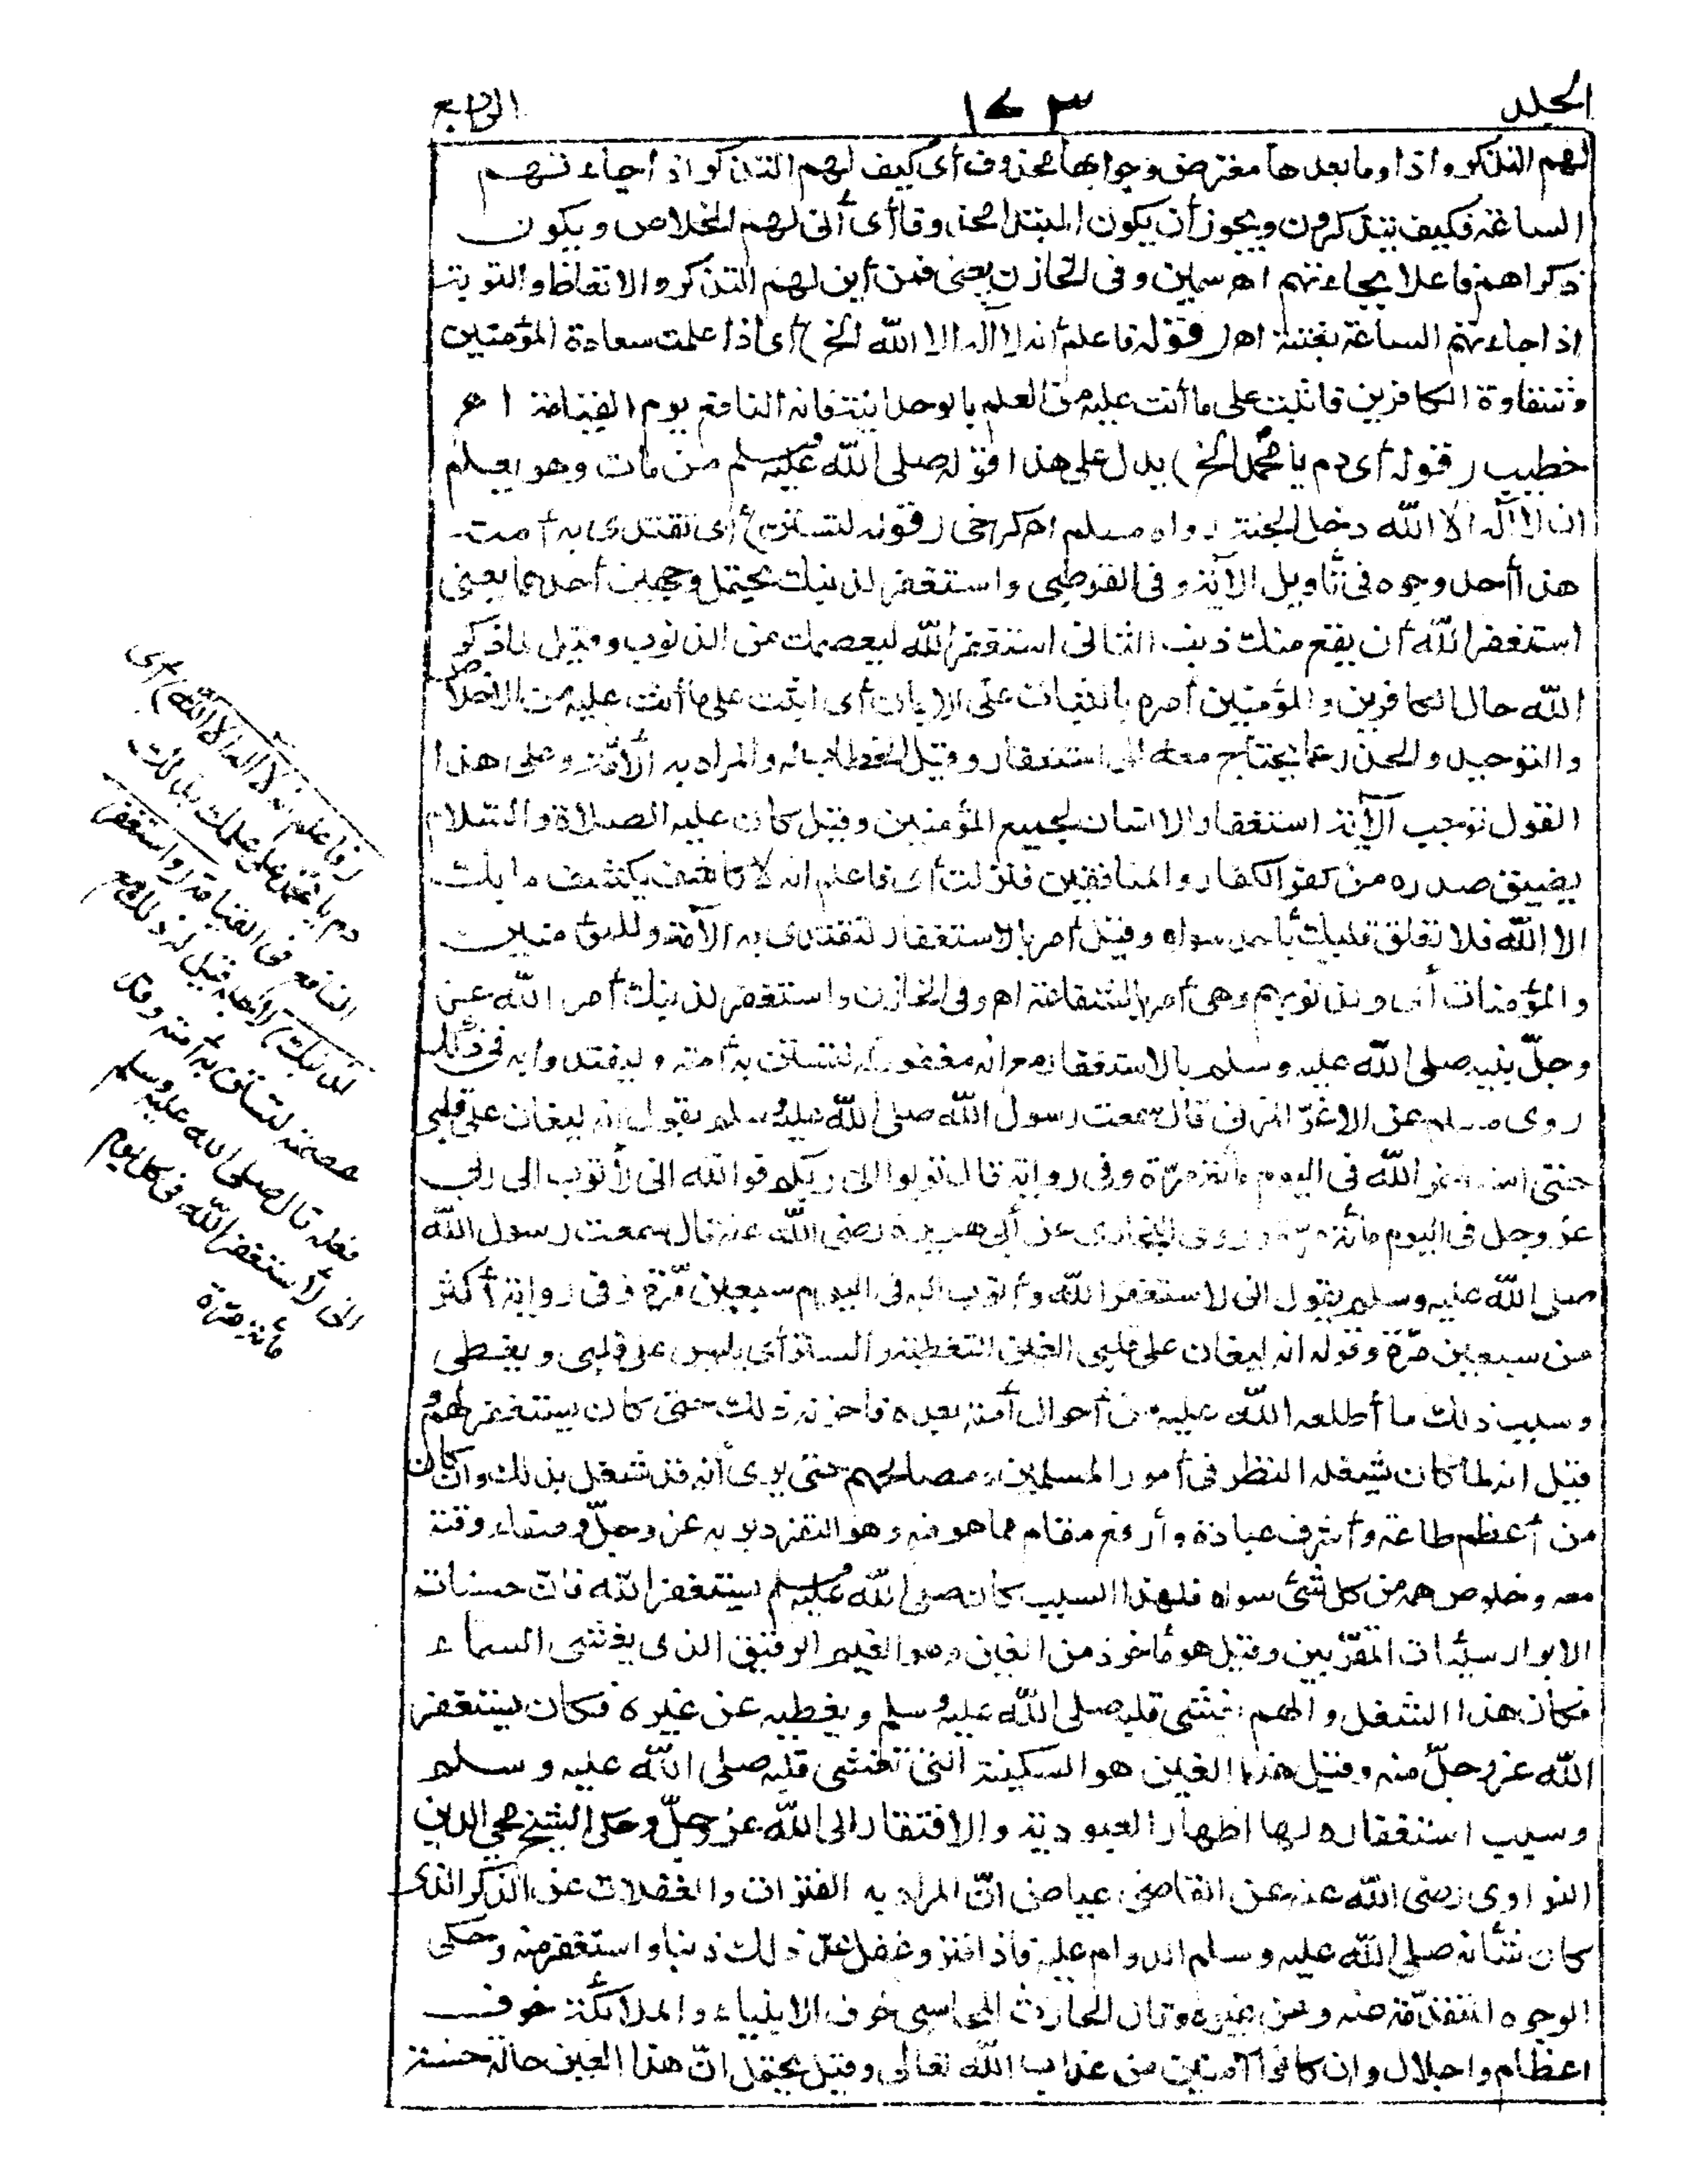 الجلد
١٧٣
الرابع
لهم التذكر واذا وما بعدها معترض وجوابها محذوف أى كيف لهم التذكر اذ اجاءتهم
الساعة فكيف يتذكرون ويجوز أن يكون المبتدا محذوفا أى أنى لهم الخلاص ويكون
ذكراهم فاعلا بجاءتهم اھ سمين وفى الخازن يعنى فمن أين لهم التذكر والاتعاظ والتوبة
اذا جاءتهم الساعة بغتة اھ (قوله فاعلم أنه لا اله الا الله الخ) أى اذا علمت سعادة المؤمنين
وشقاوة الكافرين فاثبت على ما أنت عليه من العلم بالوحدانية فانه النافع يوم القيامة اھ
خطيب (قوله أى دم يا محمد الخ) يدل على هذا قوله صلى الله عليه وسلم من مات وهو يعلم
ان لا اله الا الله دخل الجنة رواه مسلم اھ كرخى (قوله لتستن) أى تقتدى به أمت
هذا أحد وجوه فى تأويل الآية وفى القرطبى واستغفر لذنبك يحتمل وجهين أحدهما يعنى
استغفر الله أن يقع منك ذنب الثانى استغفر الله ليعصمك من الذنوب وقيل لما ذكر
الله حال الكافرين والمؤمنين أمره بالثبات على الايمان أى اثبت على ما أنت عليه من الاخلاص
والتوحيد والحذر عما يحتاج معه الى استغفار وقيل الخطاب له والمراد به الأمة وعلى هذا
القول توجب الآية استغفار الانسان لجميع المؤمنين وقيل كان عليه الصلاة والسلام
يضيق صدره من كفر الكفار والمنافقين فنزلت أى فاعلم انه لا كاشف يكشف ما بك
الا الله فلا تعلق قلبك بأحد سواه وقيل أمر بالاستغفار لتقتدى به الأمة وللمؤمنين
والمؤمنات أى ولذنوبهم وهى أمر بالشفاعة اھ وفى الخازن واستغفر لذنبك أمر الله عز
وجلّ نبيه صلى الله عليه وسلم بالاستغفار مع انه مغفور له لتستن به أمته وليقتدوا به فى ذلك
روى مسلم عن الاغرّ المزنى قال سمعت رسول الله صلى الله عليه وسلم يقول انه ليغان على قلبى
حتى استغفر الله فى اليوم مائة مرّة وفى رواية قال توبوا الى ربكم فوالله انى لأتوب الى ربى
عز وجل فى اليوم مائة مرة وروى البخارى عن أبى هريرة رضى الله عنه قال سمعت رسول الله
صلى الله عليه وسلم يقول انى لاستغفر الله وأتوب اليه فى اليوم سبعين مرّة وفى رواية أكثر
من سبعين مرّة وقوله انه ليغان على قلبى الغين التغطية والستر أى يلبس على قلبى ويغطى
وسبب ذلك ما أطلعه الله عليه من أحوال أمته بعده فاحزنه ذلك حتى كان يستغفر لهم و
قيل انه لما كان شغله النظر فى أمور المسلمين ومصالحهم حتى يرى أنه قد شغل بذلك وان كان
من أعظم طاعة وأشرف عبادة وأرفع مقام مما هو فيه وهو التفرد بربه عز وجلّ وصفاء وقته
معه وخلوص همه من كل شئ سواه فلهذا السبب كان صلى الله عليه وسلم يستغفر الله فانّ حسنات
الابرار سيئات المقرّبين وقيل هو مأخوذ من الغين وهو الغيم الرقيق الذى يغشى السماء
فكأن هذا الشغل والهم يغشى قلبه صلى الله عليه وسلم ويغطيه عن غيره فكان يستغفر
الله عز وجلّ منه وقيل هذا الغين هو السكينة التى تغشى قلبه صلى الله عليه وسلم
وسبب استغفاره لها اظهار العبودية والافتقار الى الله عز وجلّ وحكى الشيخ محيى الدين
النواوى رضى الله عنه عن القاضى عياض انّ المراد به الفترات والغفلات عن الذكر الذى
كان شأنه صلى الله عليه وسلم الدوام عليه فاذا فتر وغفل عدّ ذلك ذنبا واستغفر منه وحكى
الوجوه المتقدّمة عنه وعن غيره وقال الحارث المحاسبى خوف الانبياء والملائكة خوف
اعظام واجلال وان كانوا آمنين من عذاب الله تعالى وقيل يحتمل انّ هذا الغين حالة حسنة
(فاعلم انه لا اله الا الله) أى
دم يا محمد على علمك بذلك
النافع فى القيامة (واستغفر
لذنبك) لأجله قيل له ذلك مع
عصمته لتستن به أمته وقد
فعله قال صلى الله عليه وسلم
انى لأستغفر الله فى كل يوم
مائة مرّة